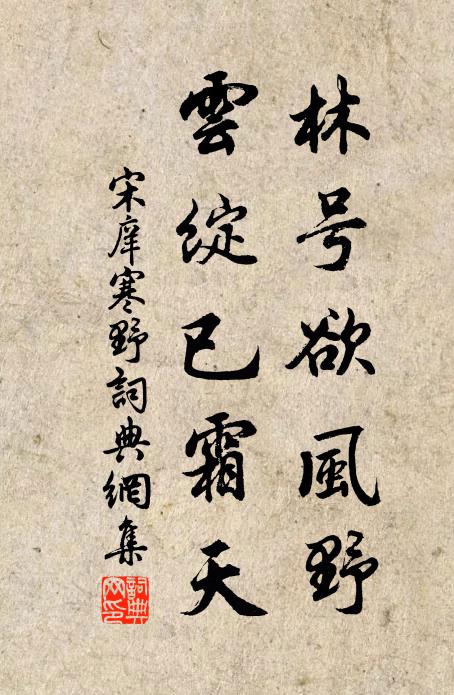 林号欲風野
雲綻已霜天
宋庠寒野詞典網集
詞典網印